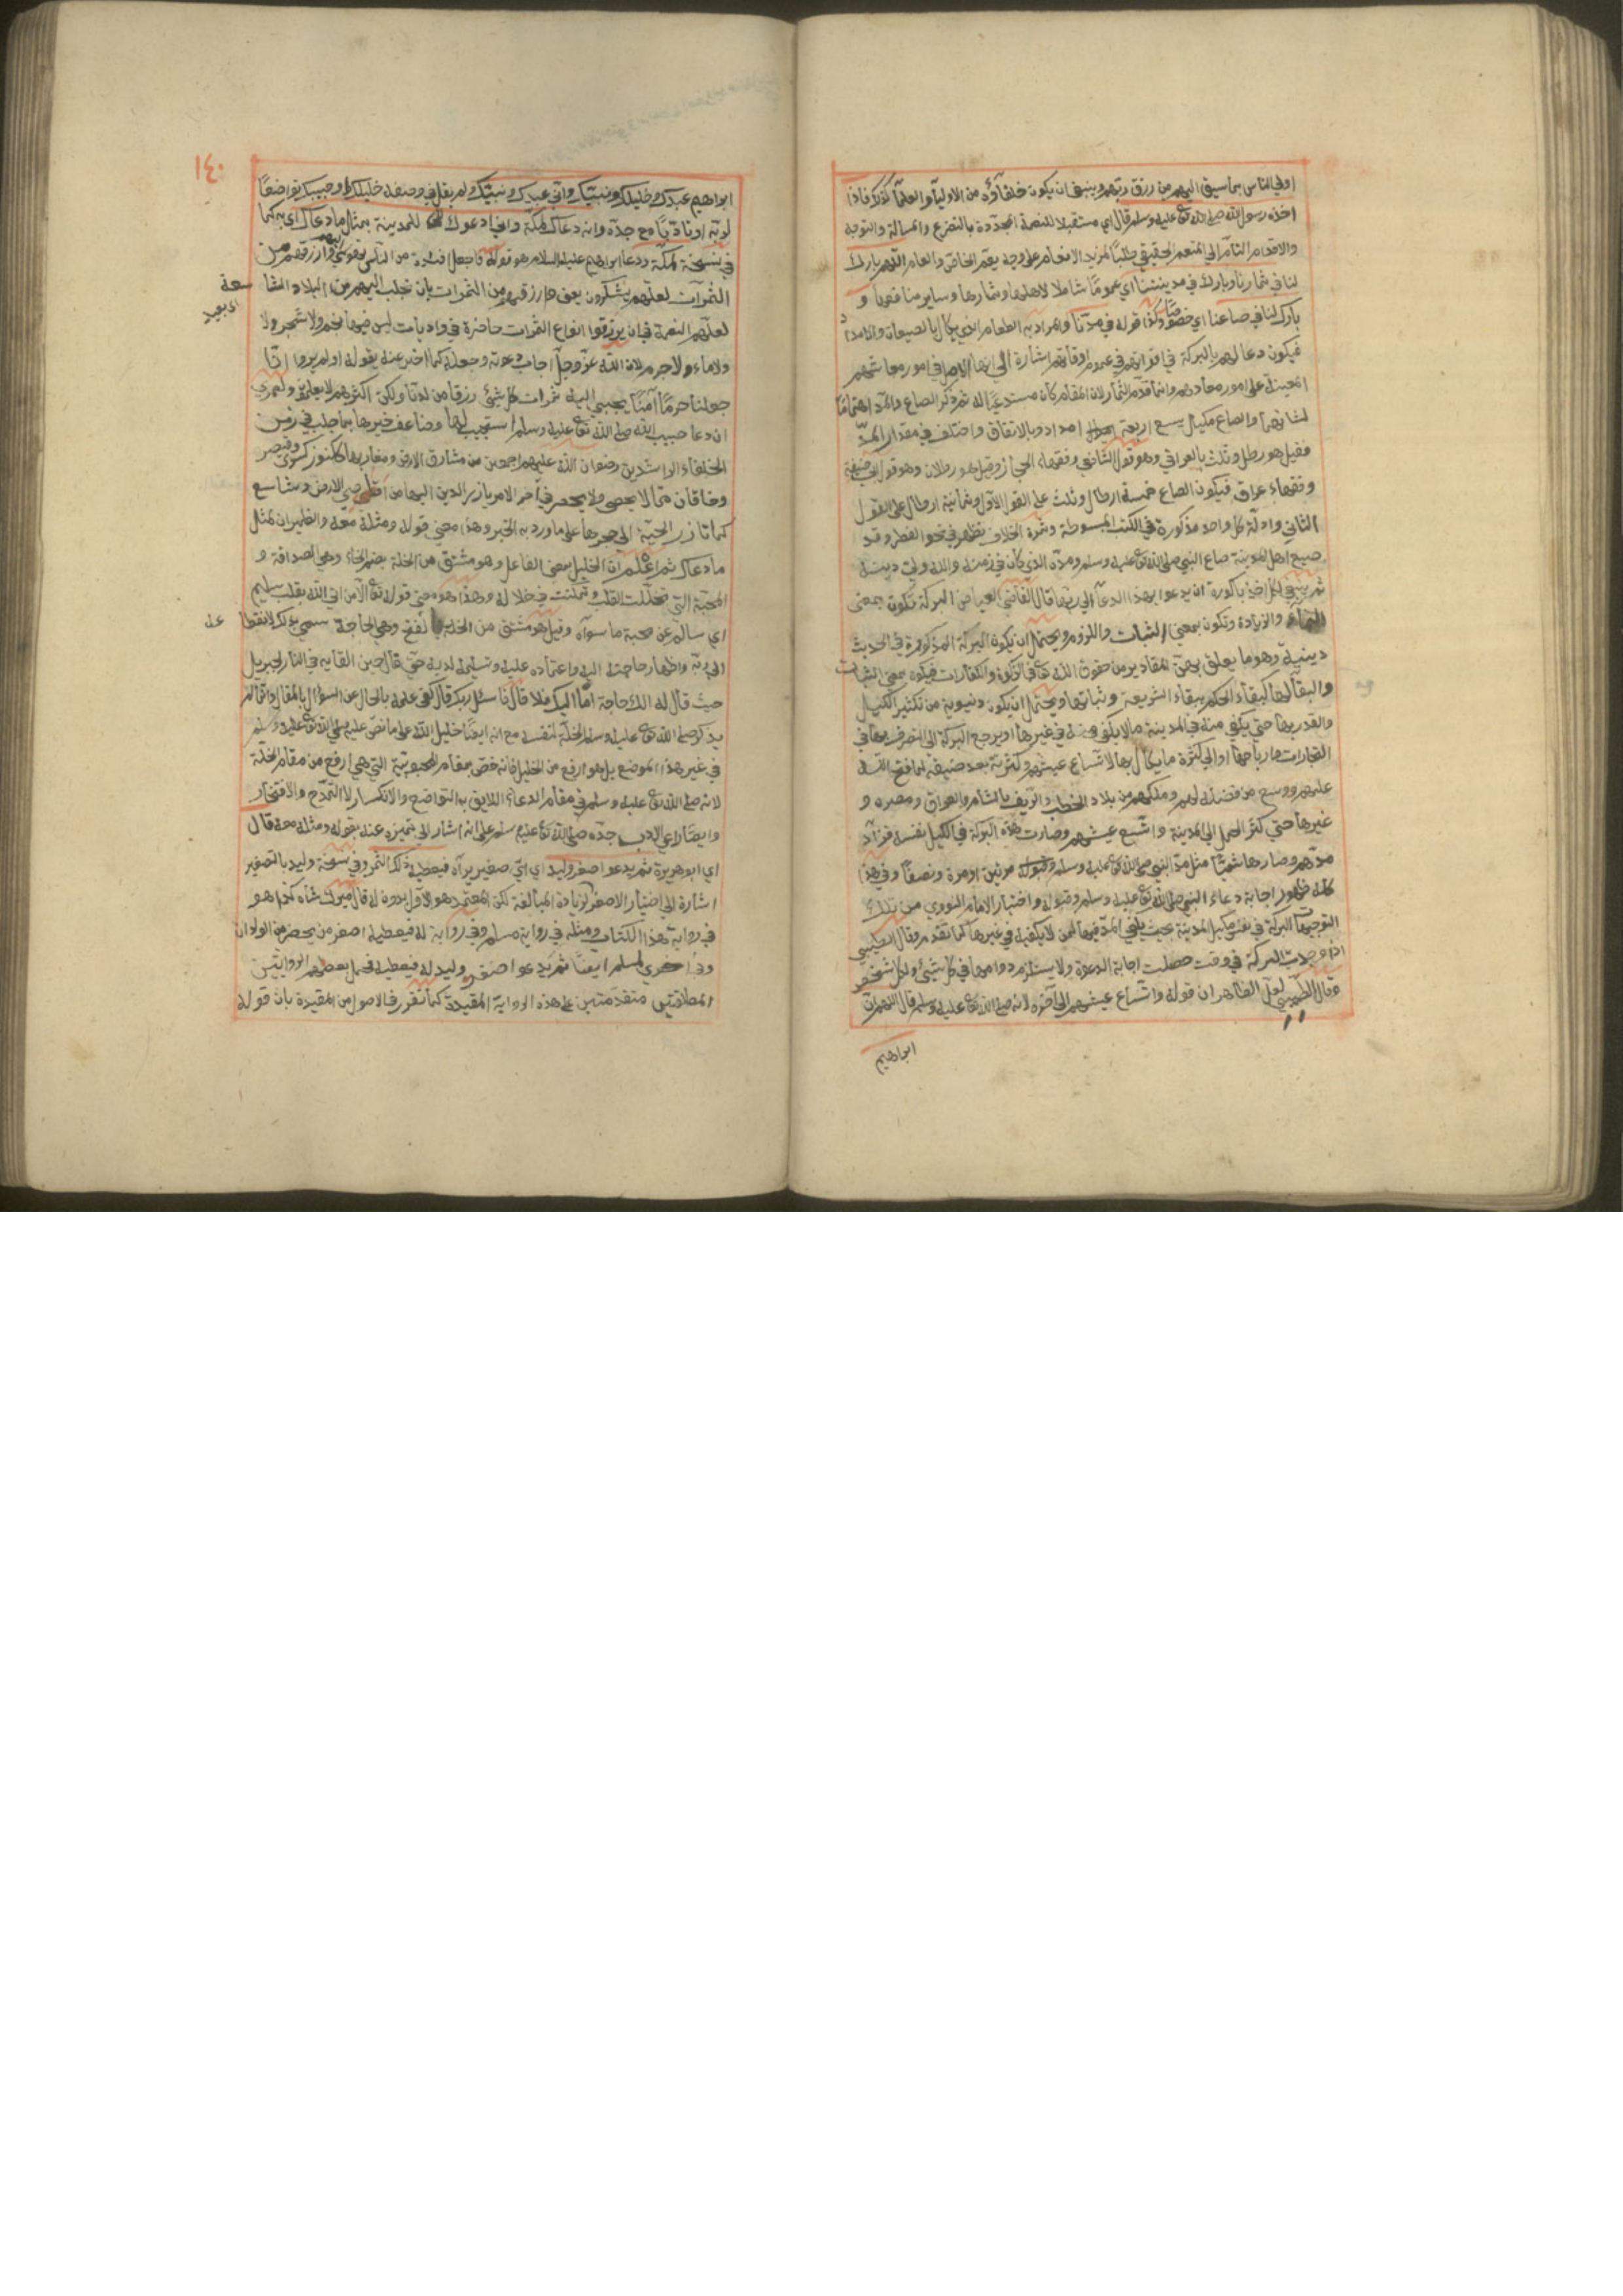 اولي الناس بما سيق اليهم من رزق ربهم وينبغي ان يكون خلفآؤه من الاوليآء والعلمآء كذلك فاذا
اخذه رسول الله صلى الله تع عليه وسلم قال اي مستقبلا للنعمة المجددة بالتضرع والمسالة والتوجه
والاقدام التآم الي المنعم الحقيقي طلبًا لمزيد الانعام على وجه يعم الخاص والعام اللهم بارك
لنا في ثمارنا وبارك في مدينتنا اي عمومًا شاملا لاهلها وثمارها وساير منافعها و
بارك لنا في صاعنا اي خصوصًا وكذا قوله في مدنا والمراد به الطعام الذي يكال بالصيعان والامداد
فيكون دعا لهم بالبركة في اقواتهم في عموم اوقاتهم اشارة الي انها الاصل في امور معاشهم
المعينة على امور معادهم وانما قدم الثمار لان المقام كان مستدعيًا له ثم ذكر الصاع والمد اهتمامًا
لشانهما والصاع مكيال يسع اربعة امداد وبالاتفاق واختلف في مقدار المدّ
فقيل هو رطل وثلث بالعراقي وهو قول الشافعي وفقهاء الحجاز وقيل هو رطلان وهو قول ابي حنيفة
وفقهاء عراق فيكون الصاع خمسة ارطال وثلث على القول الاول وثمانية ارطال على القول
الثاني وادلة كل واحد مذكورة في الكتب المبسوطة وثمرة الخلاف تظهر في نحو الفطر وقد
ضيع اهل المدينة صاع النبي صلى الله تع عليه وسلم ومده الذي كان في زمنه والله ولي دينه
ثم ينبغي لكل اخذ باكورة ان يدعوا بهذا الدعآ الي ربها قال القاضي العياض البركة تكون بمعنى
النماء والزيادة وتكون بمعنى الثبات واللزوم ويحتمل ان يكون البركة المذكورة في الحديث
دينية وهو ما يعلق بهذه المقادير من حقوق الله تع في الزكوة والكفارات فيكون بمعنى الثبات
والبقآ لها كبقاء الحكم ببقاء الشريعة وثباتها ويحتمل ان يكون دنيوية من تكثير الكيل
والقدر بها حتى يكفي منه في المدينة ما لا يكفي منه في غيرها او يرجع البركة الى التصرف بها في
التجارات وارباحها او الي كثرة ما يكال بها لاتساع عيشهم وكثرته بعد ضيقه لما فتح الله
عليهم ووسع من فضله لهم وملكهم من بلاد الخصب والريف بالشام والعراق ومصر و
غيرها حتي كثر الحمل الي المدينة واتسع عيشهم وصارت هذه البركة في الكيل نفسه فزاد
مدهم وصار هاشميًا مثل مد النبي صلى الله تع عليه وسلم مرتين او مرة ونصفًا وفي هذا
كله ظهور اجابة دعاء النبي صلى الله تع عليه وسلم وقبوله واختيار الامام النووي من تلك
التوجيهات البركة في نفس مكيل المدينة بحيث يكفي المد فيها لمن لا يكفيه في غيرها كما تقدم وقال الطيبي
اذا وجدت البركة في وقت حصلت اجابة الدعوة ولا يستلزم دوامها في كل شيئ ولكل شخص
وقال الطيبي لعل الظاهر ان قوله واتساع عيشهم الي آخره لانه صلى الله تع عليه وسلم قال اللهم ان
ابراهيم
١٤٠
ابراهيم عبدك وخليلك ونبيك واني عبدك ونبيك ولم يقل في وصفه خليلك او حبيبك تواضعًا
لربه او تادبًا مع جده وانه دعاك لمكة واني ادعوك للمدينة بمثل ما دعاك اي به كما
في نسخة لمكة ودعا ابراهيم عليه السلام هو قوله فاجعل افئدة من الناس تهوي اليهم وارزقهم من
الثمرات لعلهم يشكرون يعني وارزقهم من الثمرات بان تجلب اليهم من البلاد الشا سعة
اي بعيد
لعلهم النعمة في ان يرزقوا انواع الثمرات حاضرة في واد يباب ليس فيها نجم ولا شجر ولا
ولا ماء ولا جرم لان الله عز وجل اجاب دعوته وجعله كما اخبر عنه بقوله اولم يروا انا
جعلنا حرمًا آمنًا يجبي اليه ثمرات كل شيئ رزقا من لدنا ولكن اكثرهم لا يعلمون ولعمري
ان دعا حبيب الله صلى الله تع عليه وسلم استجيب لها وضاعف خيرها بما جلب في زمن
الخلفاء الراشدين رضوان الله عليهم اجمعين من مشارق الارض ومغاربها ككنوز كسرى وقيصر
وخاقان مما لا يحصى ولا يحصر في آخر الامر يارز الدين اليها من اقاصي الارض وشاسع
كما تارز الحية الى جحرها على ما ورد به الخبر وهذا معنى قوله ومثله معه والظهيران لمثل
ما دعاك ثم اعلم ان الخليل بمعنى الفاعل وهو مشتق من الخلة بضم الخاء وهي الصداقة و
المحبة التي تخللت القلب وتمكنت في خلاله وهذا هو معنى قوله تع الا من اتي الله بقلب سليم
اي سالم عن محبة ما سواه وقيل هو مشتق من الخلة بالفتح وهي الحاجة سمي بذلك لانقطا عه
الى ربه واظهار حاجته اليه واعتماده عليه وتسليمه لديه حتى قال حين القايه في النار لجبريل
حيث قال له الك حاجة اما اليك فلا قال فاسئل ربك قال كفى علمه بالحال عن السؤال بالمقال وانما لم
يذكر صلى الله تع عليه وسلم الخلة لنفسه مع انه ايضًا خليل الله على ما نص عليه صلى الله تع عليه وسلم
في غير هذا الموضع بل هو ارفع من الخليل فانه خص بمقام المحبوبية التي هي ارفع من مقام الخلة
لانه صلى الله تع عليه وسلم في مقام الدعاء اللايق به التواضع والانكسار لا التمدح والافتخار
وايضًا راعي الادب جده صلى الله تع عليه وسلم على انه اشار الى تميزه عنه بقوله ومثله معه قال
اي ابو هريرة ثم يدعو اصغر وليد اي اي صغير يراه فيعطيه ذلك الثمر وفي نسخة وليد بالتصغير
اشارة الي اختيار الاصغر لزيادة المبالغة لكن المعتمد هو الاول بدون له قال ميرك شاه كذا هو
في رواية هذا الكتاب ومثله في رواية مسلم وفي رواية له فيعطيه اصغر من يحضر من الولدان
وفي اخري لمسلم ايضًا ثم يدعو اصغر وليد له فيعطيه فحمل بعضهم الروايتين
المطلقتين متقدمتين على هذه الرواية المقيدة كما تقرر في الاصول من المقيدة بان قوله